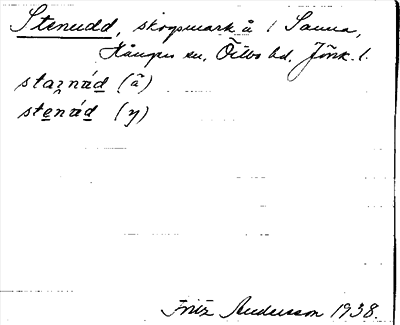 Stenudd, skogsmark å 1 Sanna,
Kångers sn, Östbo hd, Jönk. l.
starnúd (ä)
stenúd (y)
Fritz Andersson 1938.